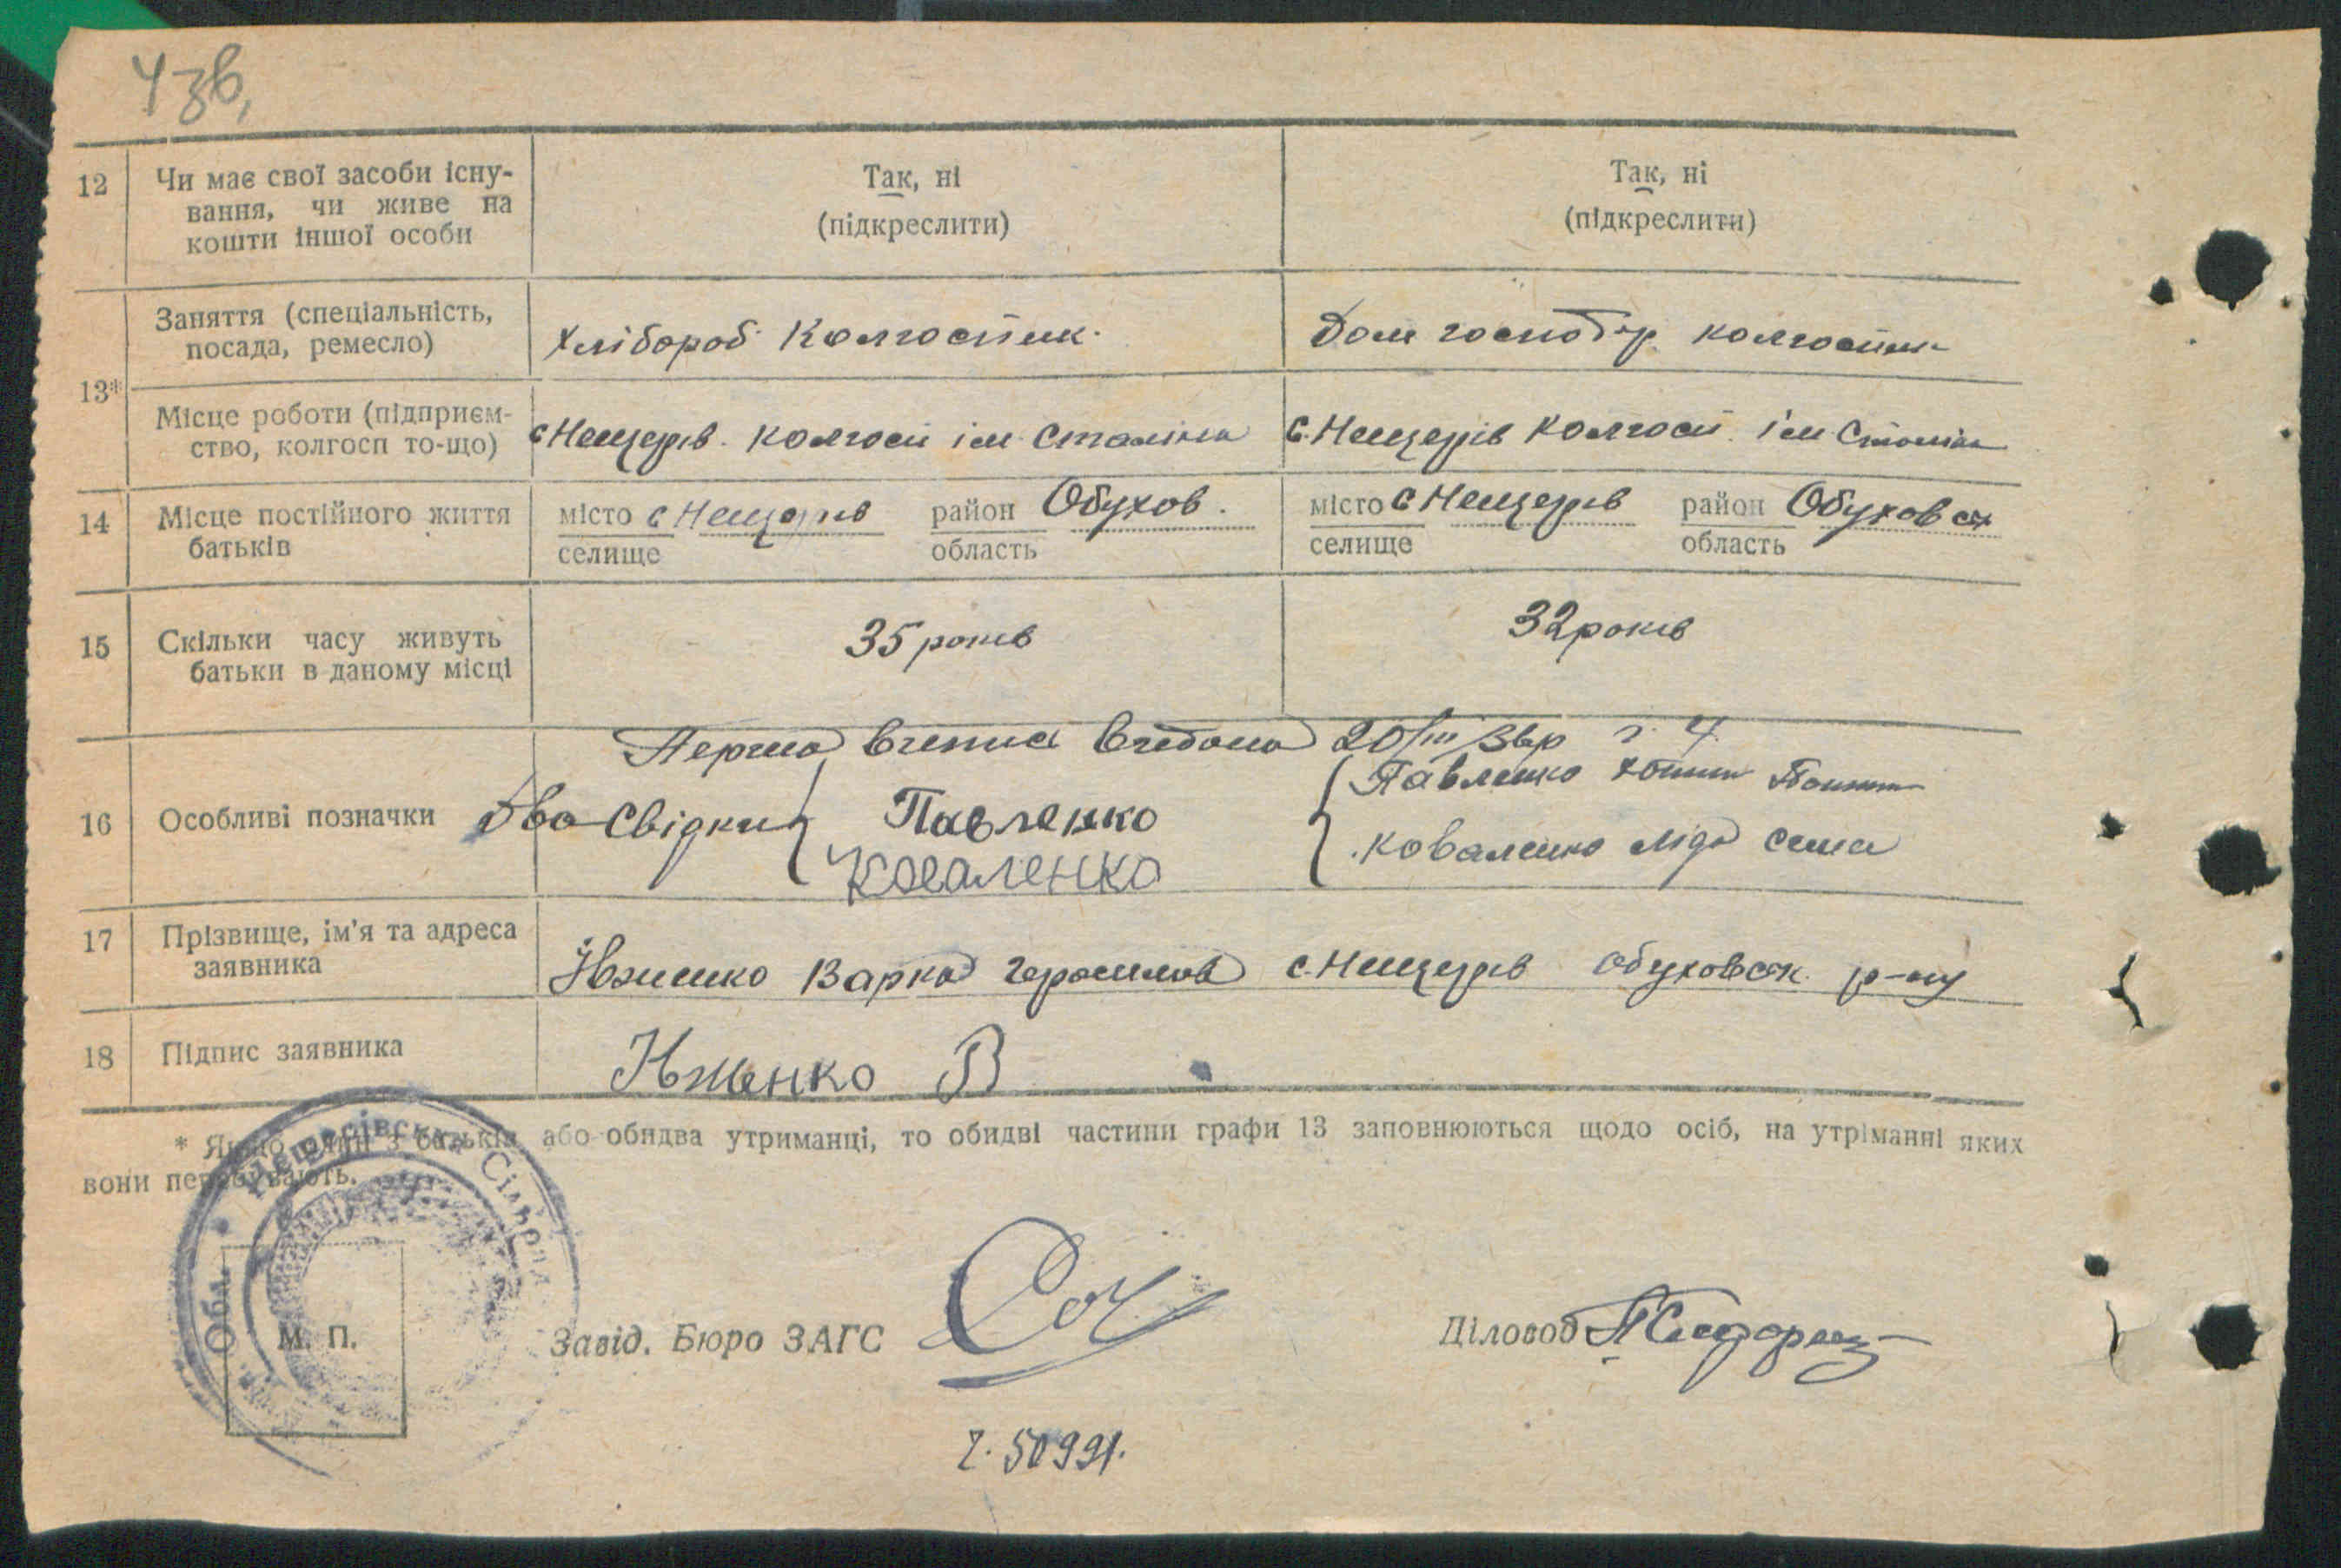 43в,
12 Чи має свої засоби існу- Так, ні Так, ні
вання, чи живе на (підкреслити) (підкреслити)
кошти іншої особи
Заняття (спеціальність, Хлібороб Колгоспник Дом господар колгоспник
посада, ремесло)
13*
Місце роботи (підприєм- с Нещерів колгосп ім Сталіна с. Нещерів колгосп ім Сталіна
ство, колгосп то-що)
14 Місце постійного життя місто с Нещерів район Обухов. місто с Нещерів район Обуховск
батьків селище область селище область
15 Скільки часу живуть 35 років 32 років
батьки в даному місці
Перша видана 20/III 36р
16 Особливі позначки Два Свідки { Павленко { Павленко
Коваленко Коваленко Ліда сама
17 Прізвище, ім'я та адреса Варка с. Нещерів Обуховск. р-ну
заявника
18 Підпис заявника В
* Якщо один з батьків або обидва утриманці, то обидві частини графи 13 заповнюються щодо осіб, на утріманні яких
вони перебувають.
Нещерівська Сільрад
Обл.
М. П. Завід. Бюро ЗАГС Діловод
50991.